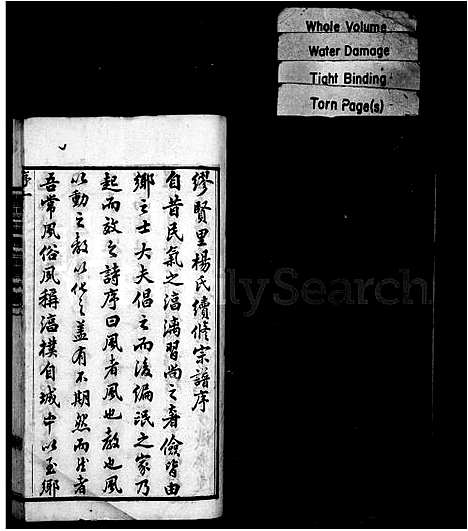 Whole Volume
Water Damage
Tight Binding
Torn Page(s)
繆賢里楊氏續修宗譜序
自昔民氣之淳漓習尚之奢儉皆由
鄉之士大夫倡之而後編氓之家乃
起而效之詩序曰風者風也教也風
以動之教以化之蓋有不期然而然者
吾常風俗夙稱淳樸自城中以至鄉
序
FamilySearch